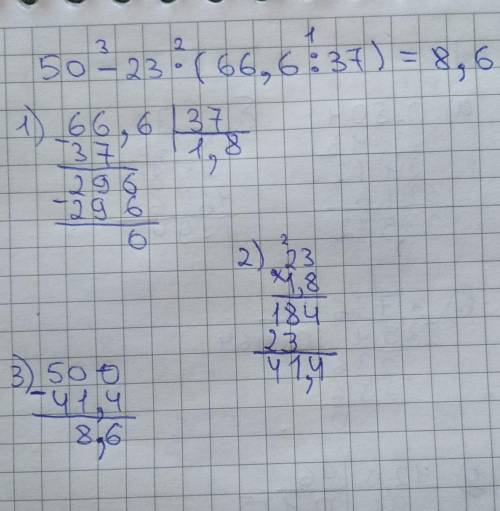 50 - 23 · (66,6 : 37) = 8,6
3 2 1
1) 66,6 | 37
- 37 | 1,8
296
- 296
0
2) 23
2
× 1,8
184
23
41,4
3) 500
- 41,4
8,6